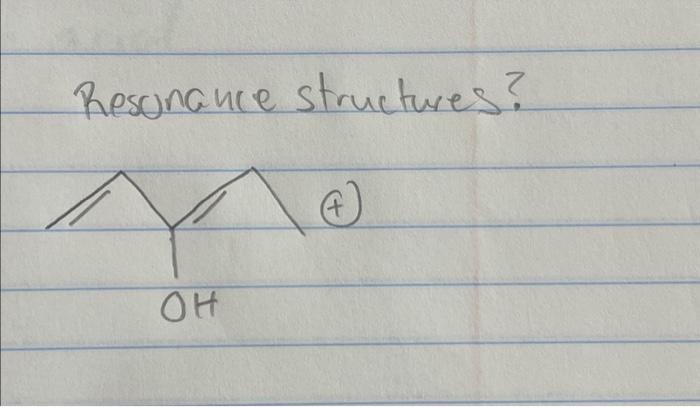 Resonance structures?
+
OH